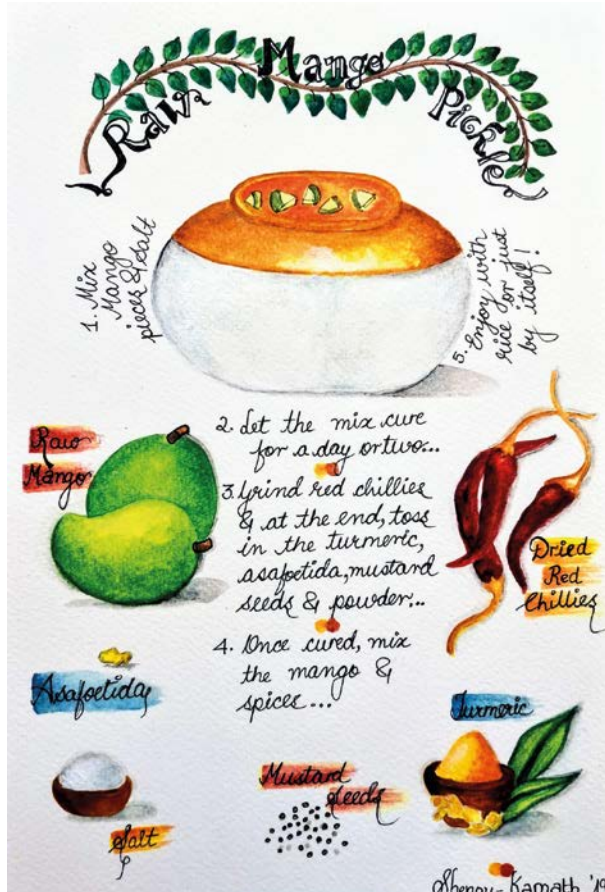 Raw Mango Pickle
1. Mix
Mango
pieces & Salt
5. Enjoy with
rice or just
by itself!
2. Let the mix cure
for a day or two...
3. Grind red chillies
& at the end, toss
in the turmeric,
asafoetida, mustard
seeds & powder...
4. Once cured, mix
the mango &
spices...
Raw
Mango
Dried
Red
Chillies
Asafoetida
Turmeric
Salt
Mustard
Seeds
Shenoy-Kamath '19